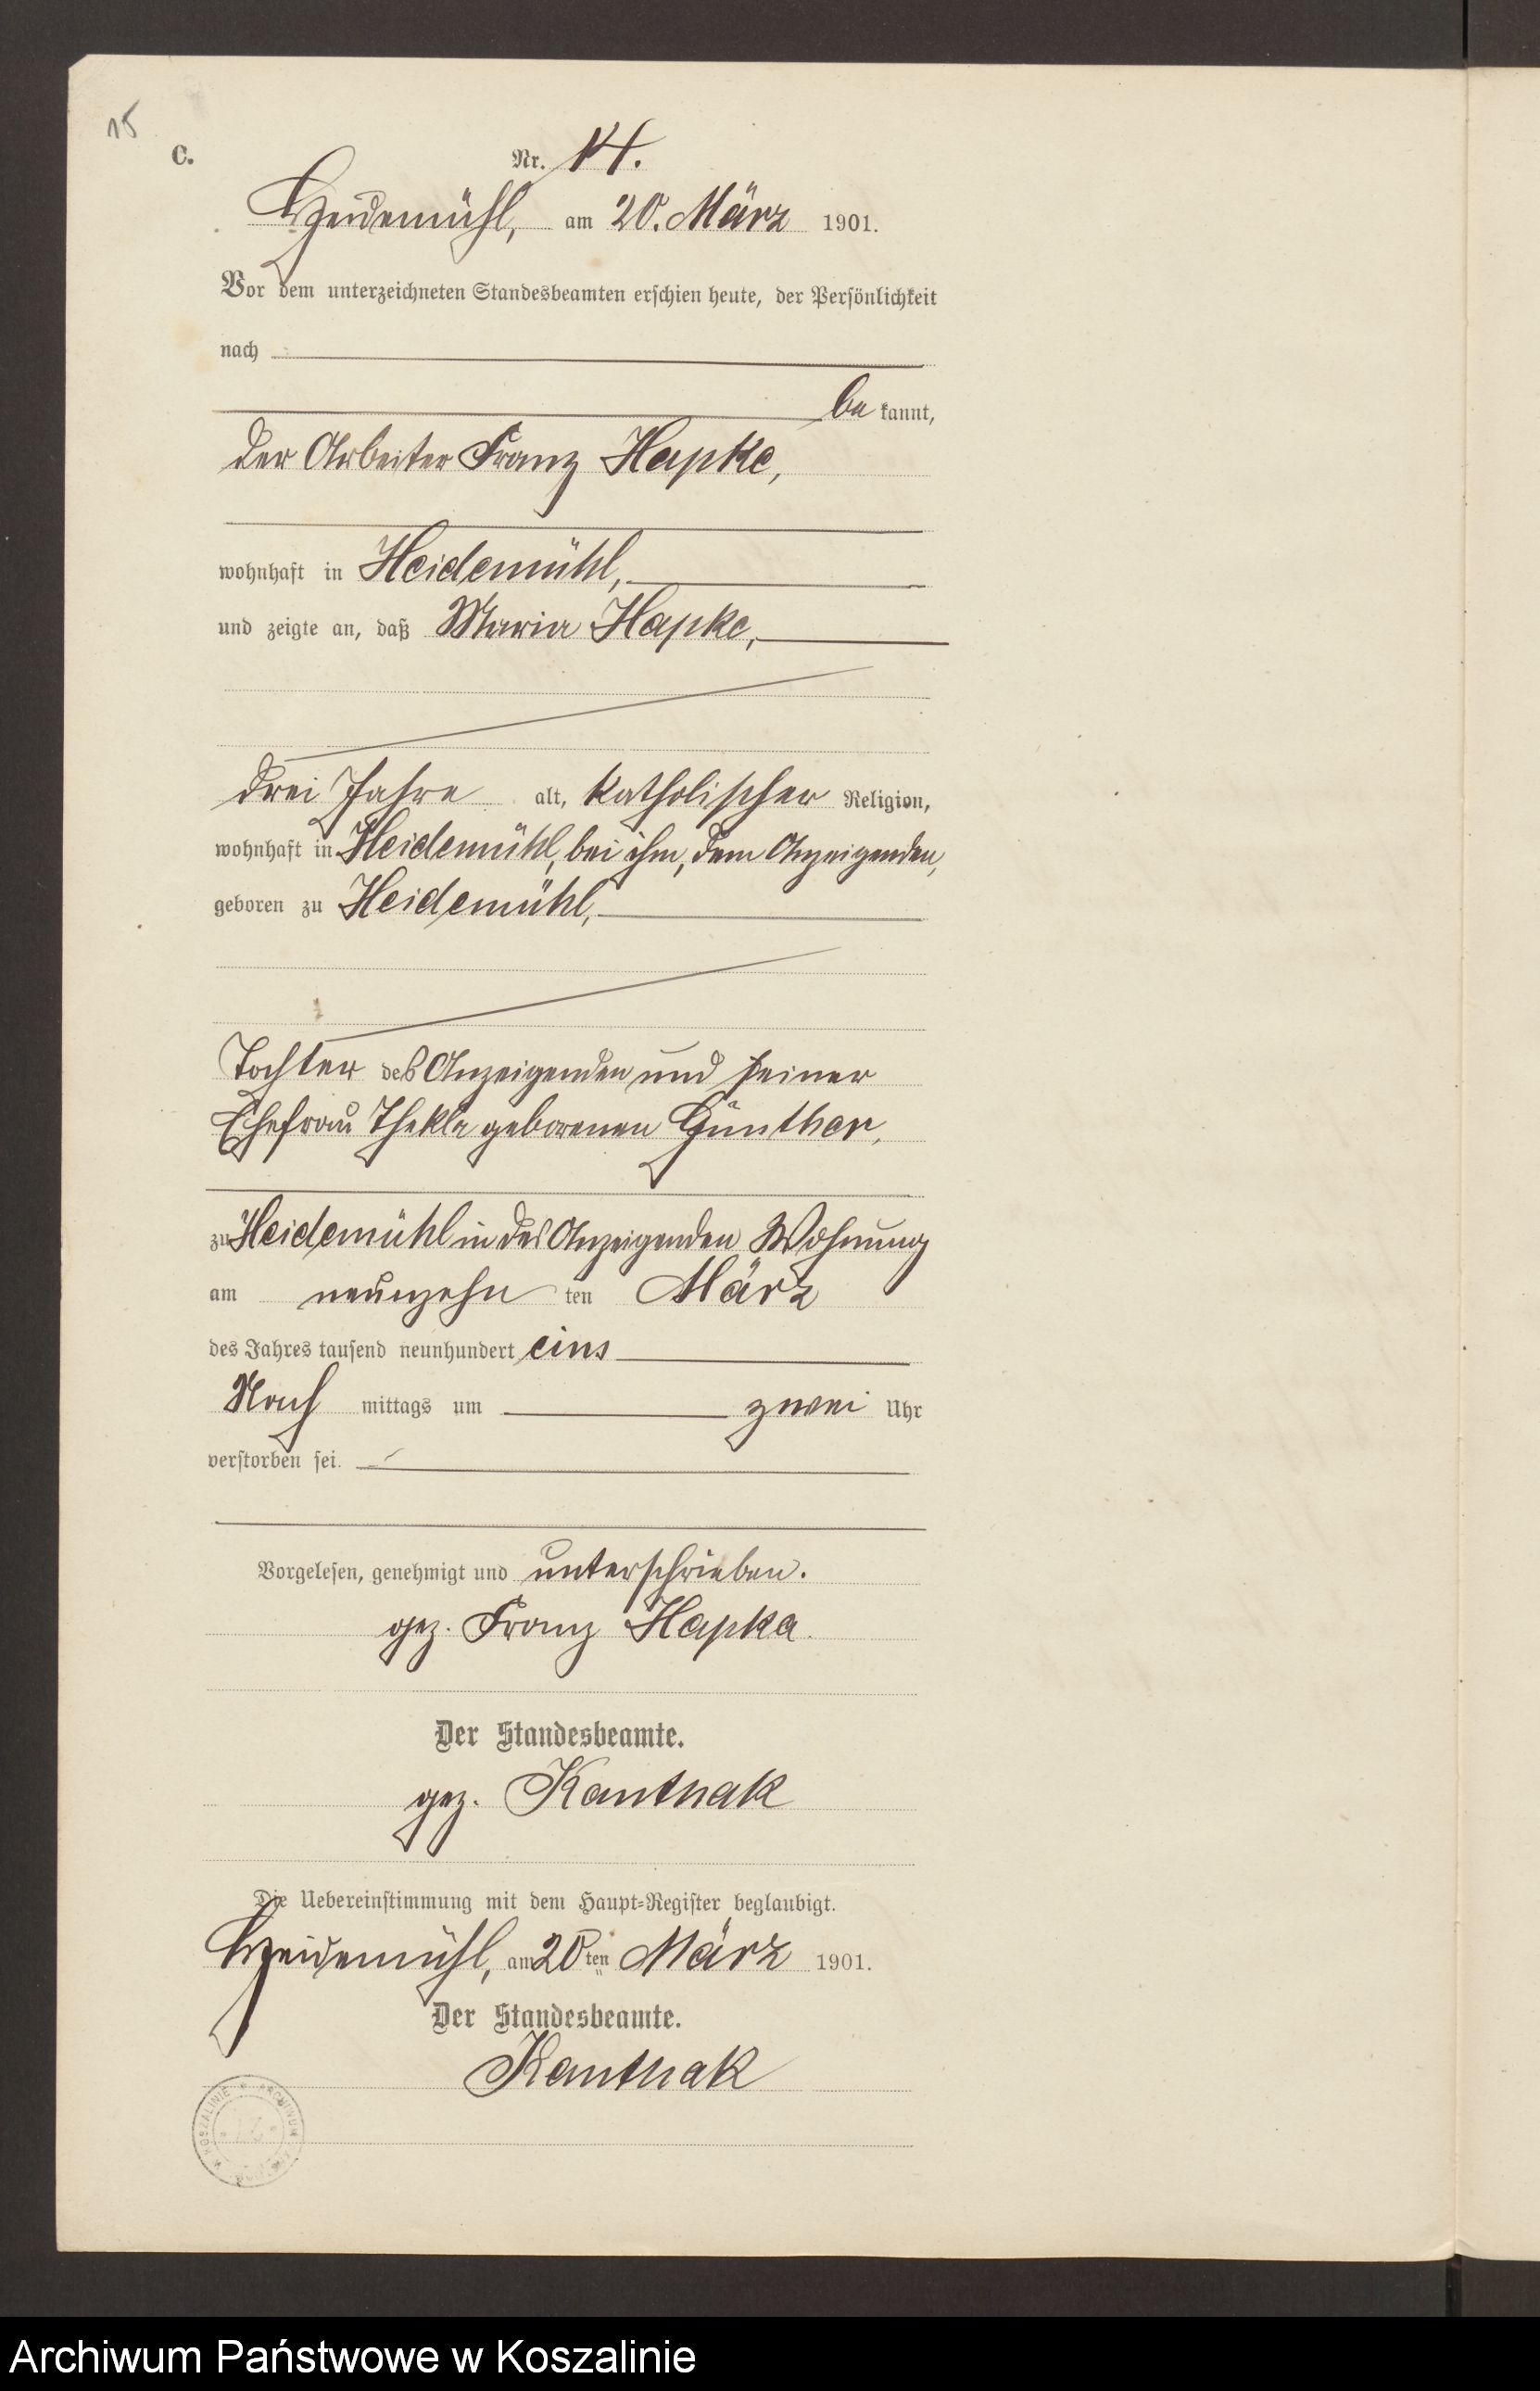 15
C.
Nr. 14.
Heidemühl, am 20. März 1901.
Vor dem unterzeichneten Standesbeamten erschien heute, der Persönlichkeit
nach
be kannt,
der Arbeiter Franz Hapke,
wohnhaft in Heidemühl,
und zeigte an, daß Maria Hapke,
drei Jahre alt, katholischer Religion,
wohnhaft in Heidemühl, bei ihm, dem Anzeigenden,
geboren zu Heidemühl,
Tochter des Anzeigenden und seiner
Ehefrau Thekla geborenen Günther,
zu Heidemühl in des Anzeigenden Wohnung
am neunzehn ten März
des Jahres tausend neunhundert eins
Nach mittags um zwei Uhr
verstorben sei.
Vorgelesen, genehmigt und unterschrieben.
gez. Franz Hapka.
Der Standesbeamte.
gez. Kanthak
Die Uebereinstimmung mit dem Haupt-Register beglaubigt.
Heidemühl, am 20ten März 1901.
Der Standesbeamte.
Kanthak
Archiwum Państwowe w Koszalinie